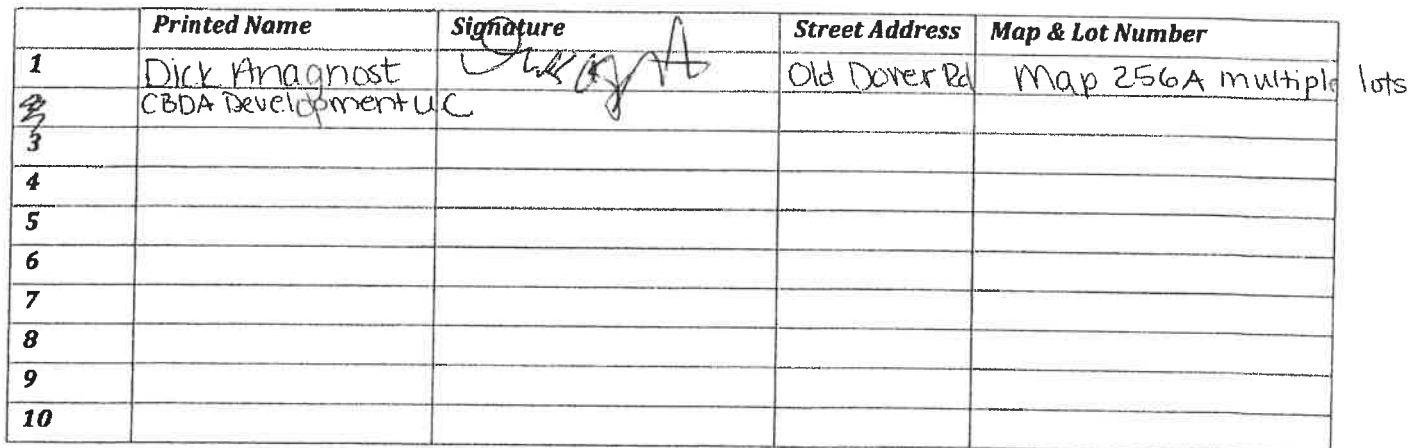 Printed Name Signature Street Address Map & Lot Number
1 Dick Anagnost Old Dover Rd Map 256A multiple lots
CBDA Development LLC
3
4
5
6
7
8
9
10